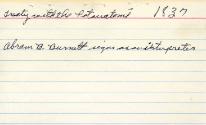 Treaty with the Potawatomi 1837
Abram B. Burnett signs as an interpreter